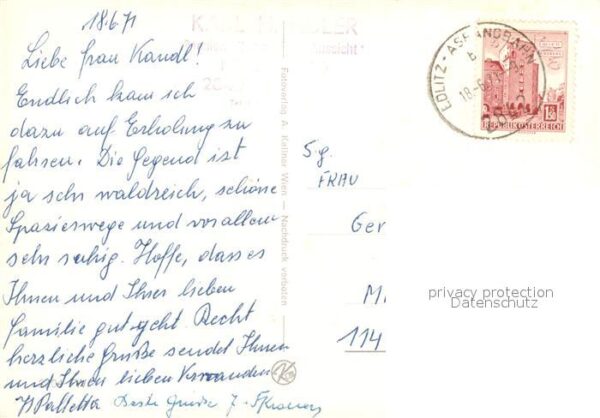 18.6.71
Liebe Frau Kandl!
Endlich kam ich
dazu auf Erholung zu
fahren. Die Gegend ist
ja sehr waldreich, schöne
Spazierwege und vor allem
sehr ruhig. Hoffe, dass es
Ihnen und Ihrer lieben
Familie gut geht Recht
herzliche Grüße sendet Ihnen
und Ihren lieben
Palletta Beste Grüße
Fotoverlag A. Kellner Wien — Nachdruck verboten
EDLITZ - ASPANGBAHN
18-6
REPUBLIK ÖSTERREICH
Sg.
FRAU
Ger
M
114
privacy protection
Datenschutz